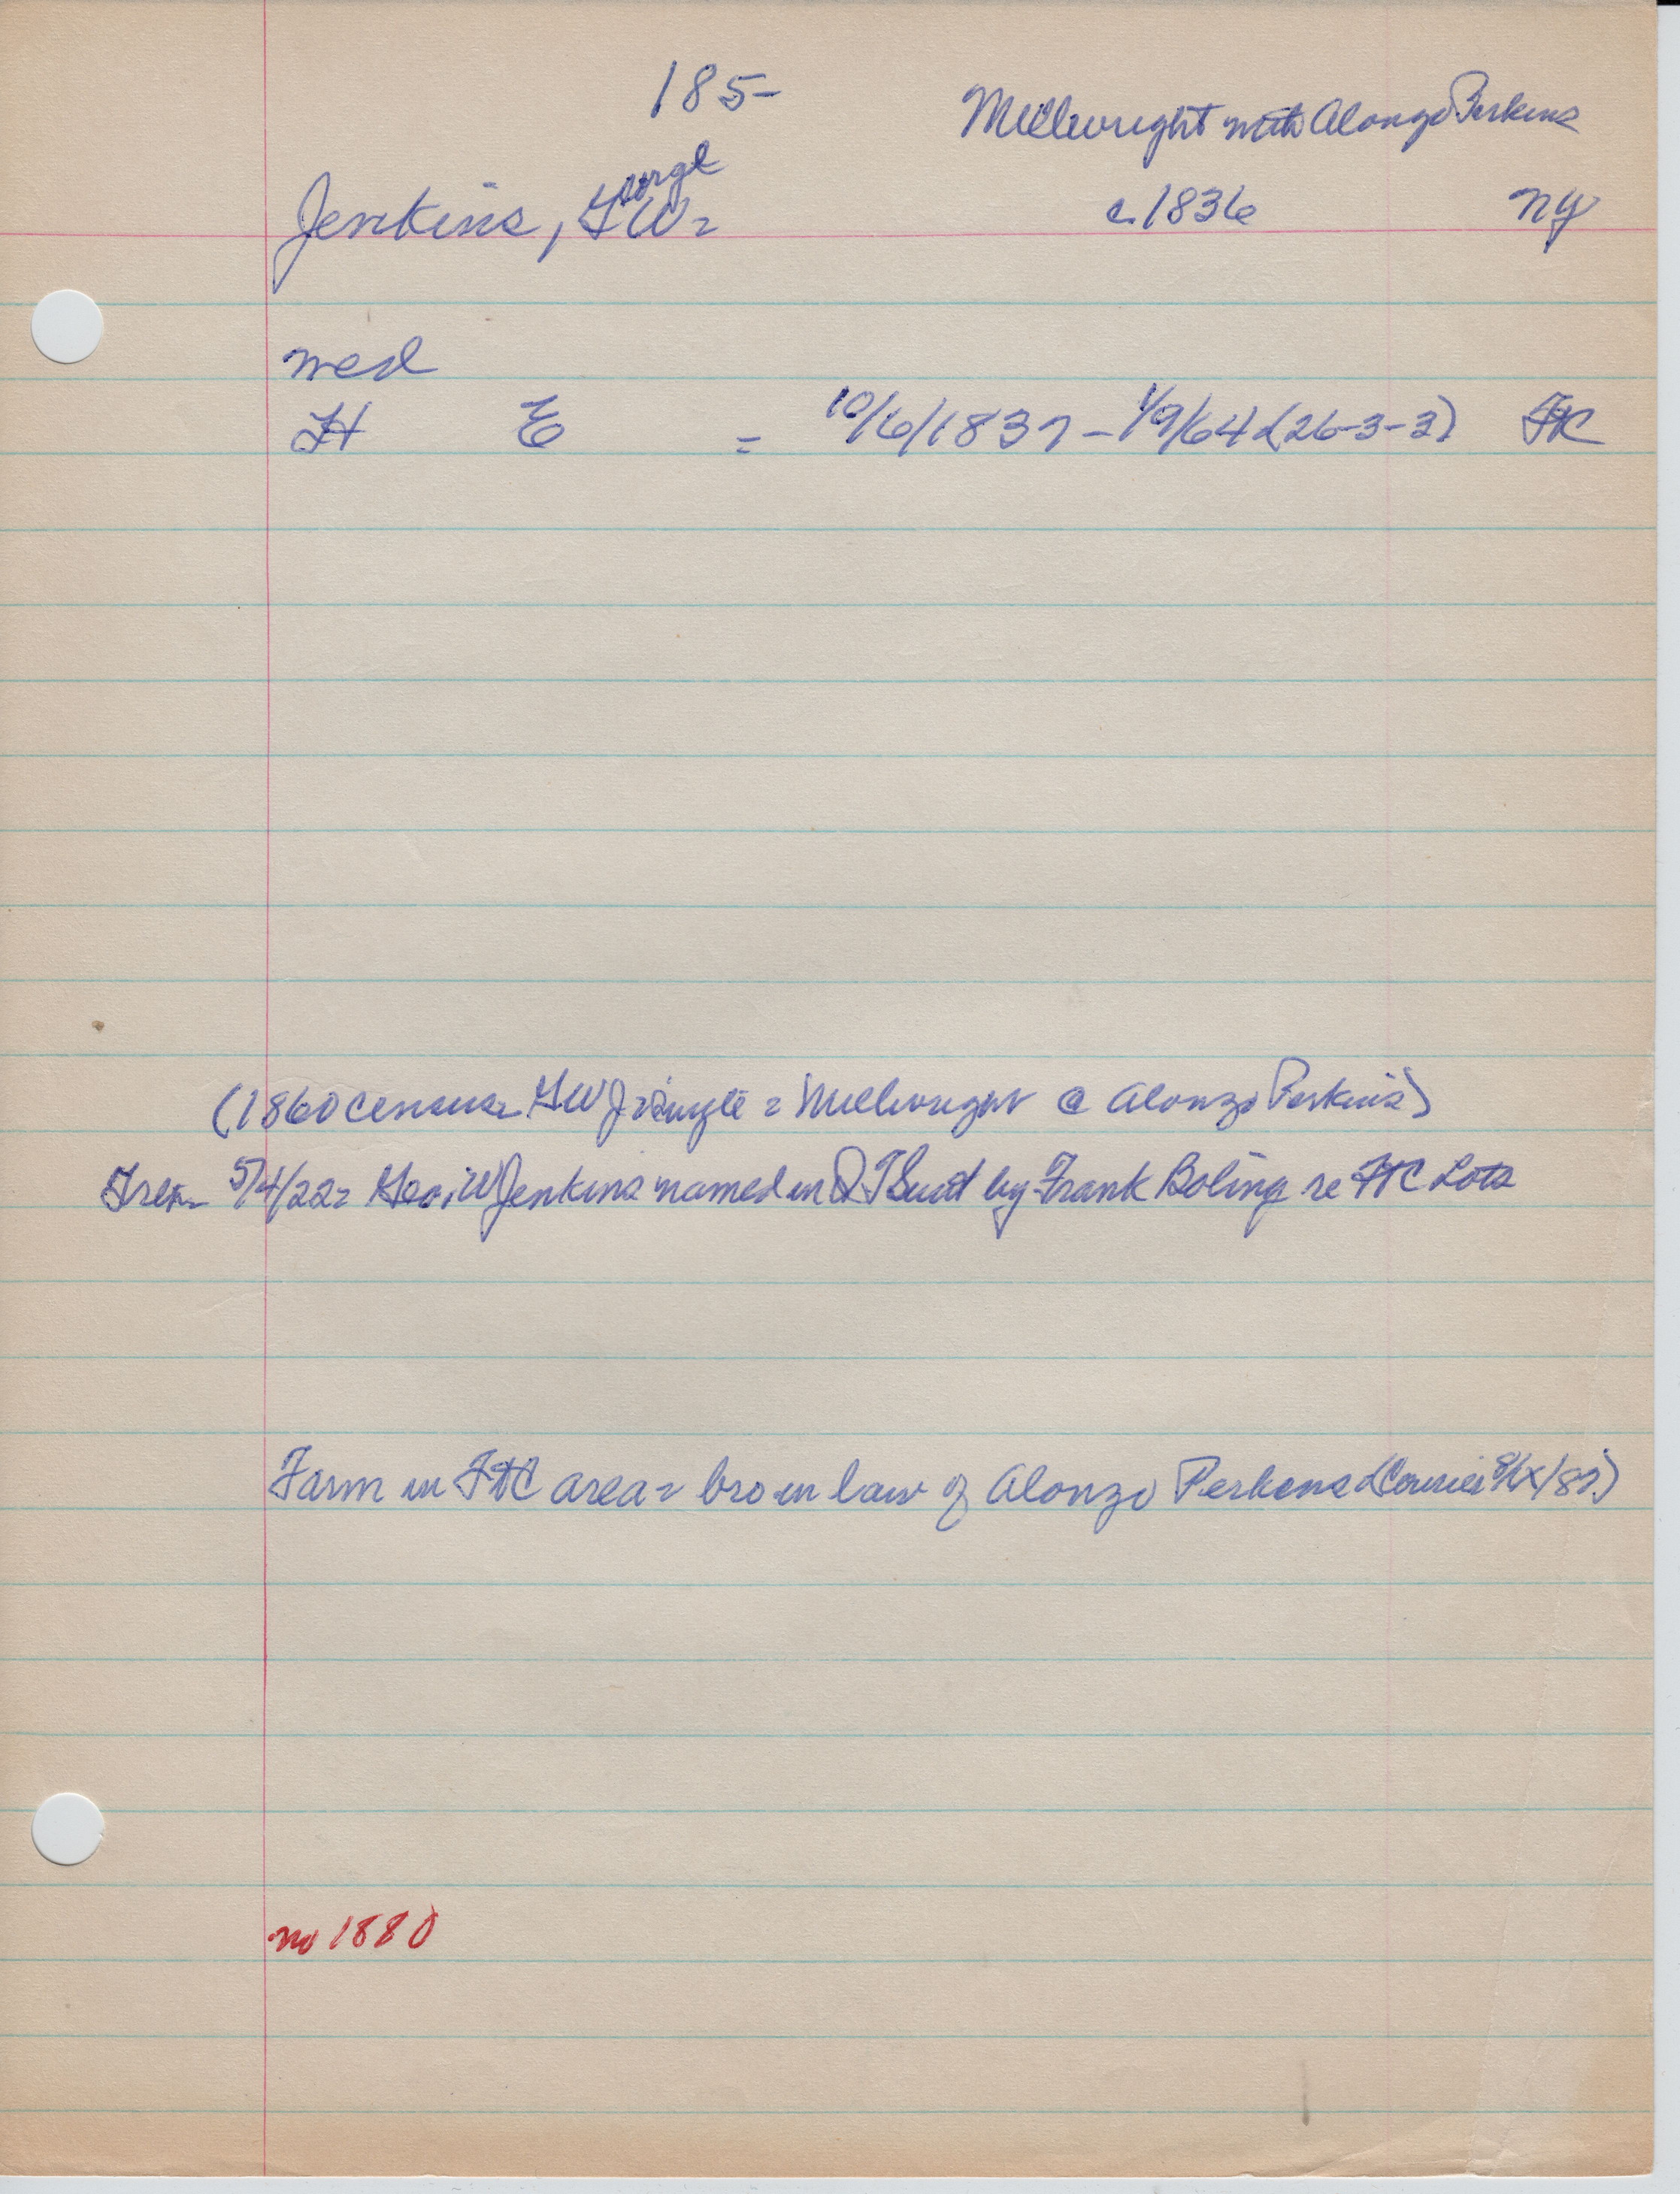 185-
Millwright with Alonzo Perkins
George
Jenkins, GW = c. 1836 NY
wed
H E = 10/6/1837 - 1/9/64 (26-3-3) FTC
(1860 census = GWJ = single = Millwright @ Alonzo Perkins)
5/4/22 = Geo. W Jenkins named in QT Suit by Frank Boling re FTC Lots
Farm in FTC area = bro in law of Alonzo Perkins (Courier
no 1880